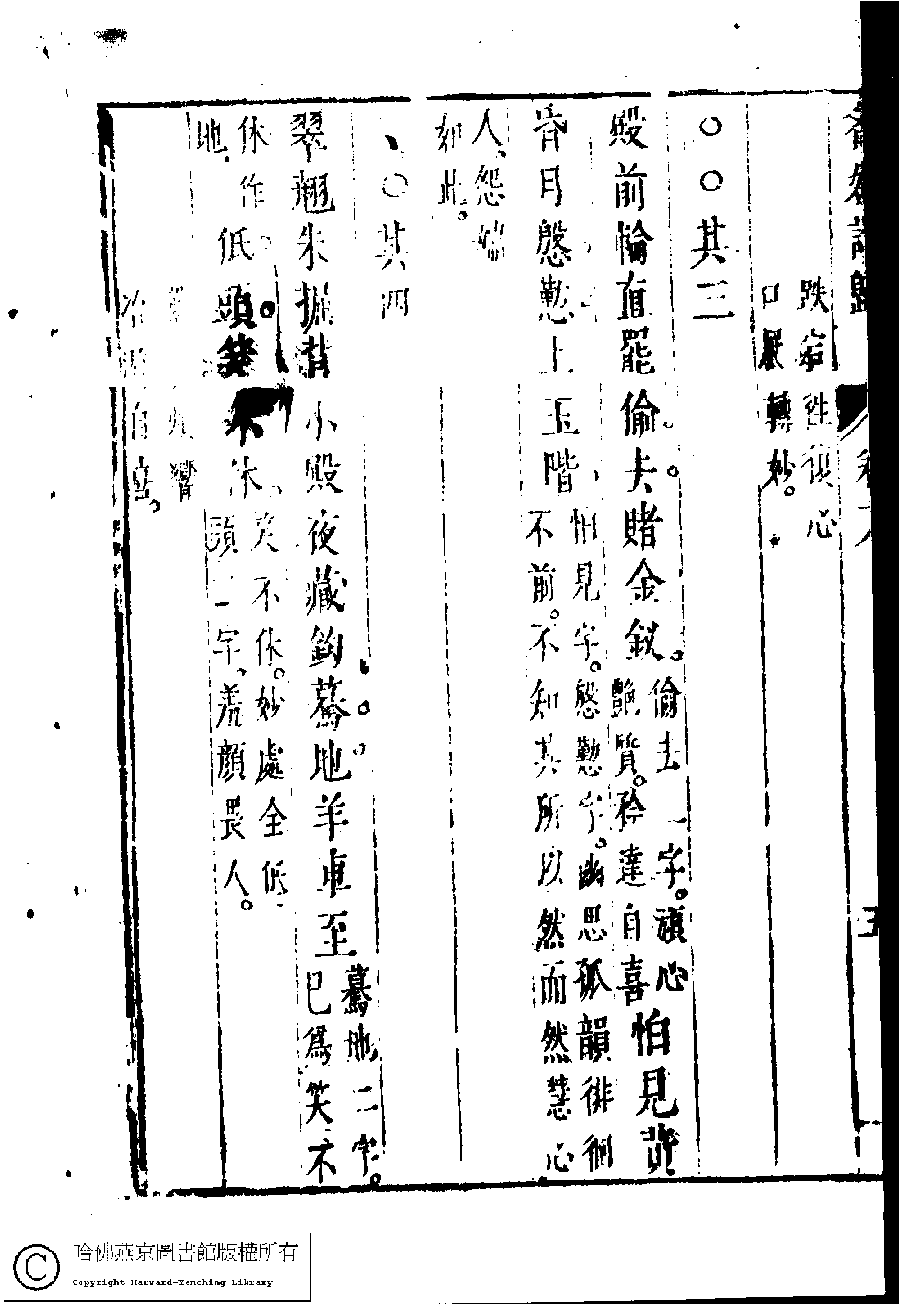 跌宕往復心
口最轉妙。
〇〇其三
殿前輪直罷偷去賭金釵
偷去一字。頑心
艷質。矜達自喜
怕見黃
昏月慇懃上玉階
怕見字。慇懃字。幽思孤韻徘徊
不前。不知其所以然而然慧心
人怨端
如此。
〇其四
翠翹朱掘背小殿夜藏鈎驀地羊車至
驀地二字。
已爲笑不
休作
地
低頭笑不休
笑不休。妙處全低
頭二字。羞顏畏人。
自喜。
哈佛燕京圖書館版權所有
Copyright Harvard-Yenching Library